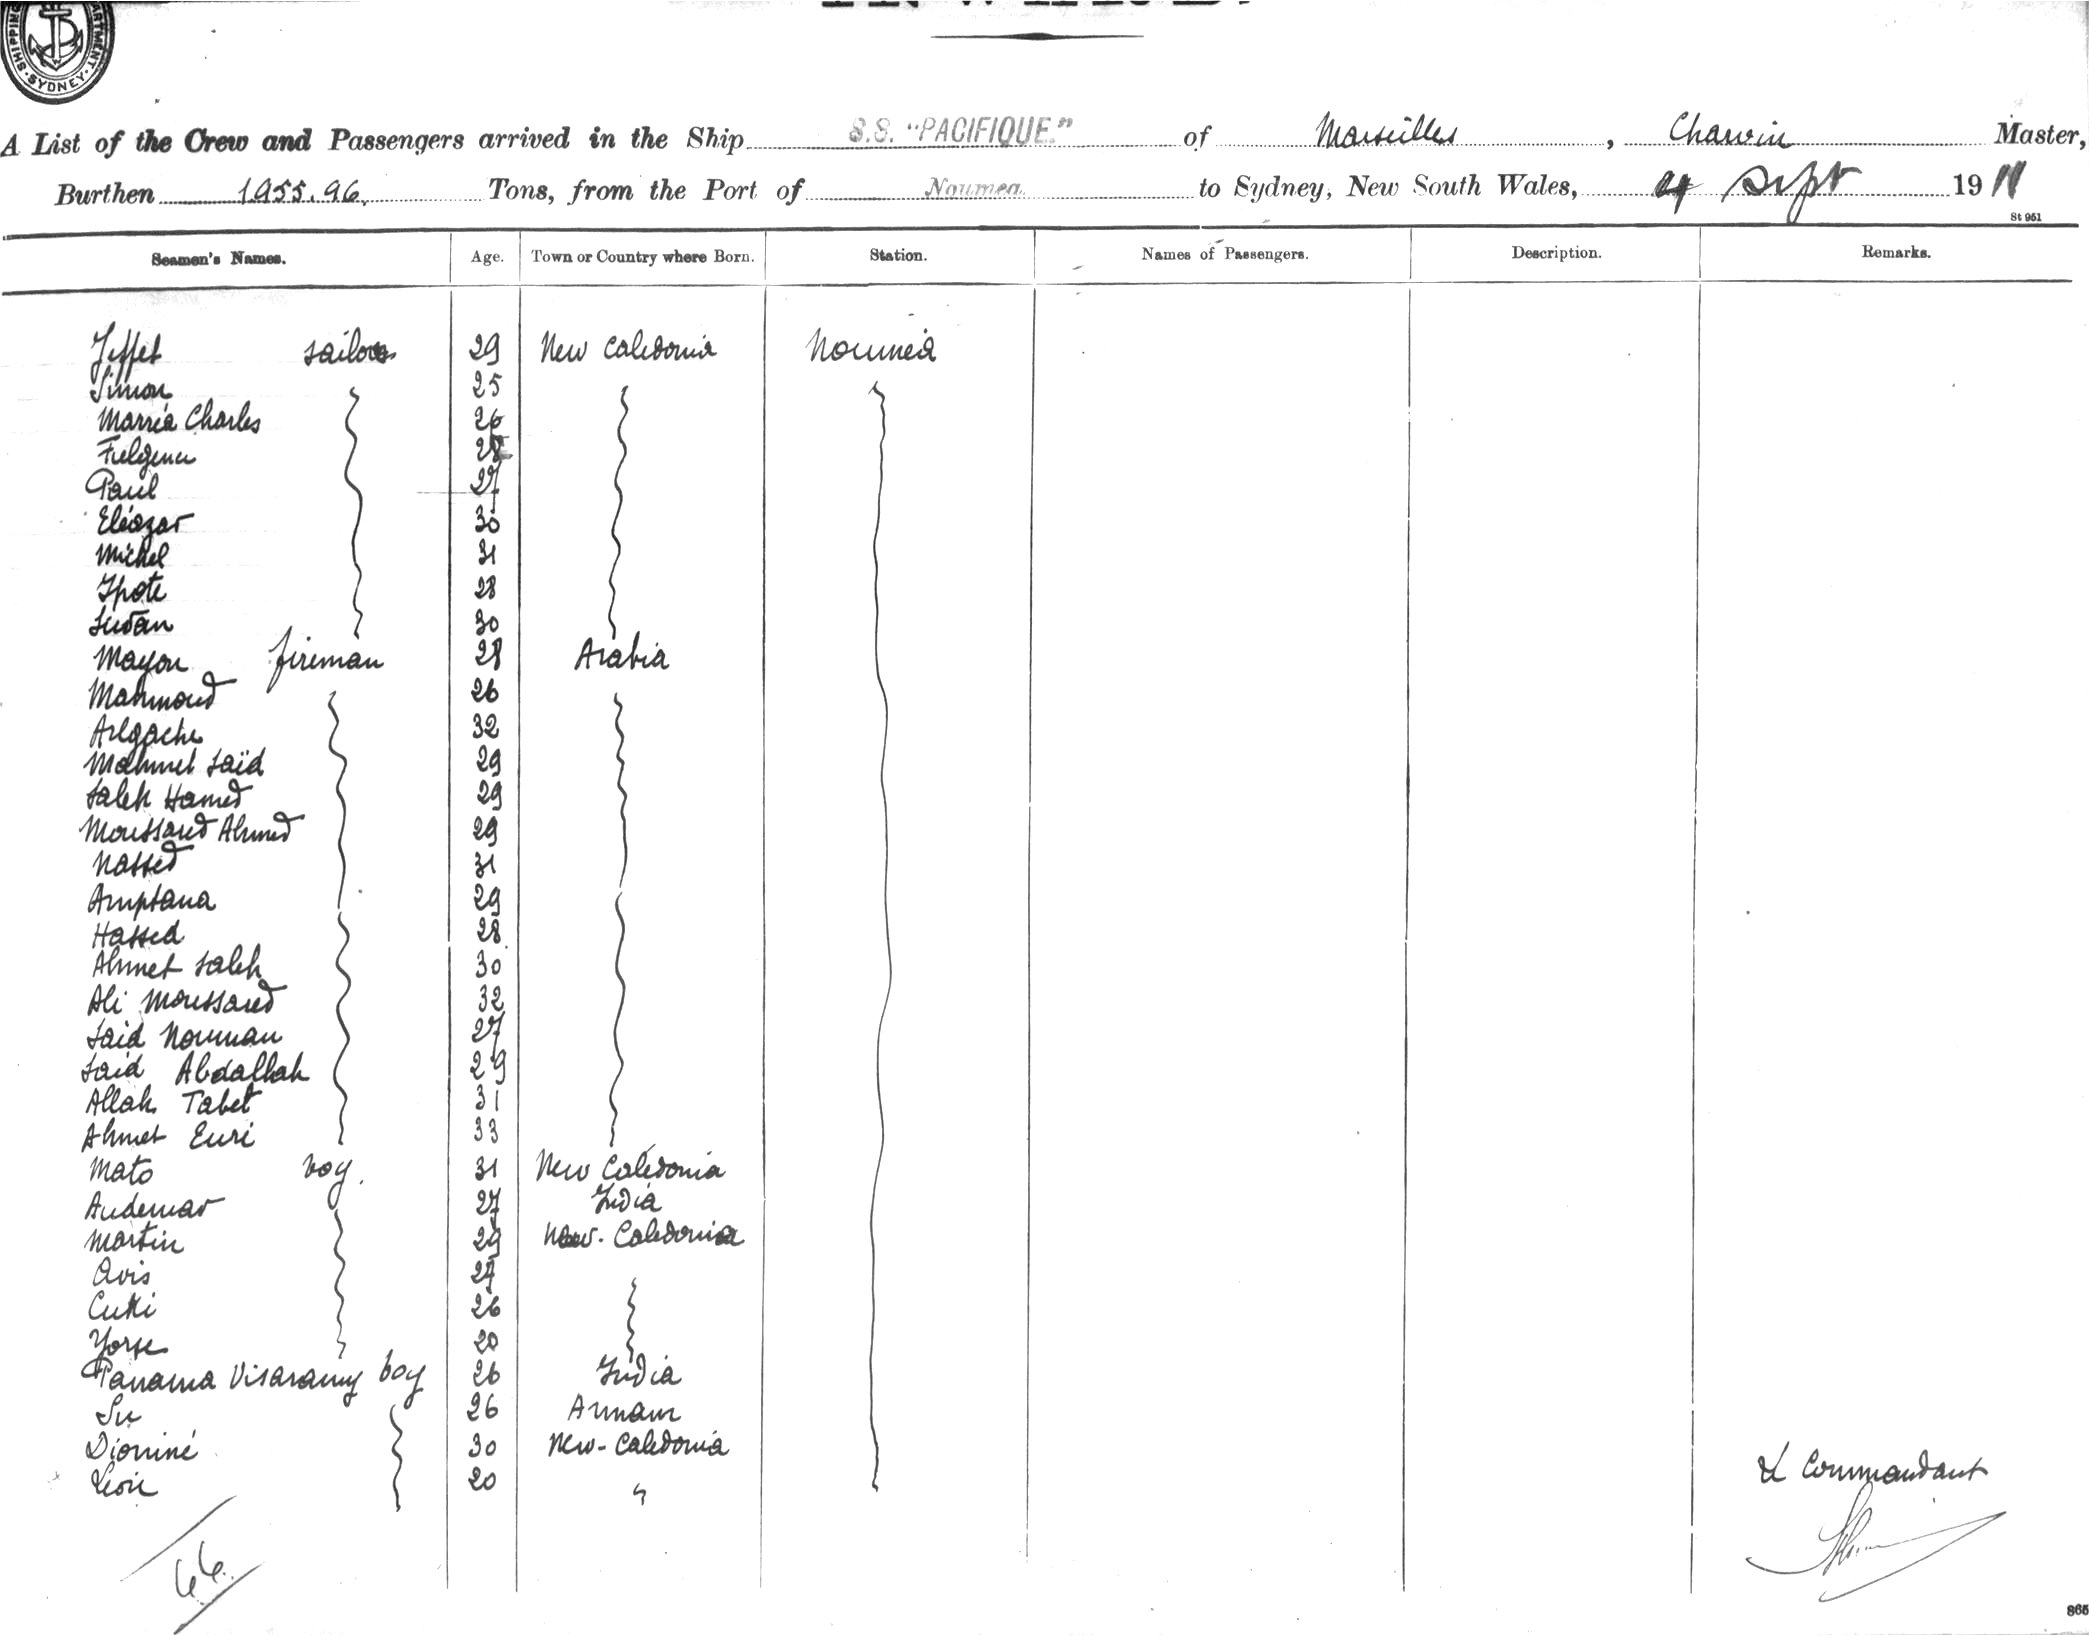 SHIPPING DEPARTMENT. SYDNEY.
INWARD.
A List of the Crew and Passengers arrived in the Ship S.S. "PACIFIQUE." of Marseilles, Charvin Master,
Burthen 1955.96. Tons, from the Port of Noumea to Sydney, New South Wales, Sept 1911
St 951
Seamen's Names. Age. Town or Country where Born. Station. Names of Passengers. Description. Remarks.
Jeffet sailors 29 New Caledonia Noumea
Simon 25
Marria Charles 26
Fulgence 28
Paul 27
Eléazar 30
Michel 31
Ipoti 28
Judan 30
Mayou fireman 28 Arabia
Mahmoud 26
Arlgache 32
Mahmet Saïd 29
Saleh Hamed 29
Moussaed Ahmed 29
Nassed 31
Amptana 29
Hassed 28
Ahmet Saleh 30
Ali Moussaed 32
Said Nouman 27
Said Abdallah 29
Allah Tabet 31
Ahmet Euri 33
Mato boy. 31 New Caledonia
Audemar 27 India
Martin 29 New-Caledonia
Avis 27
Cutti 26
Yorse 20
Panama Visaramy boy 26 India
Su 26 Annam
Dioniné 30 New-Caledonia
Léon 20 "
Le Commandant
66.
865